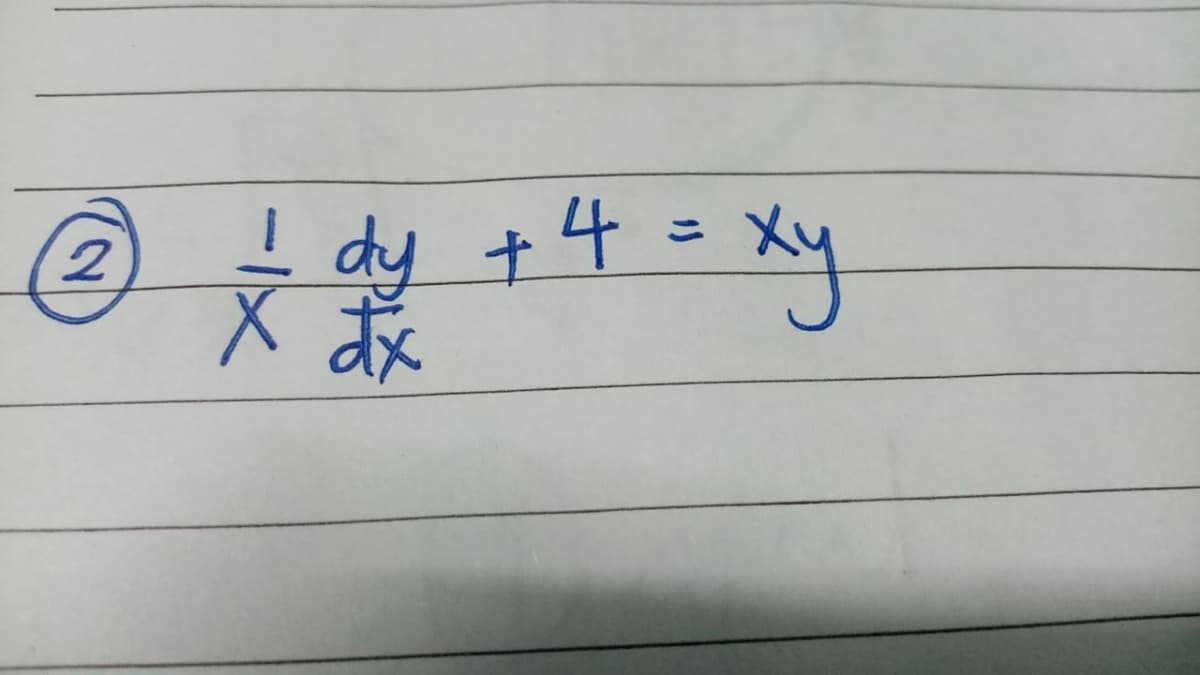 ② 1/X dy/dx + 4 = xy